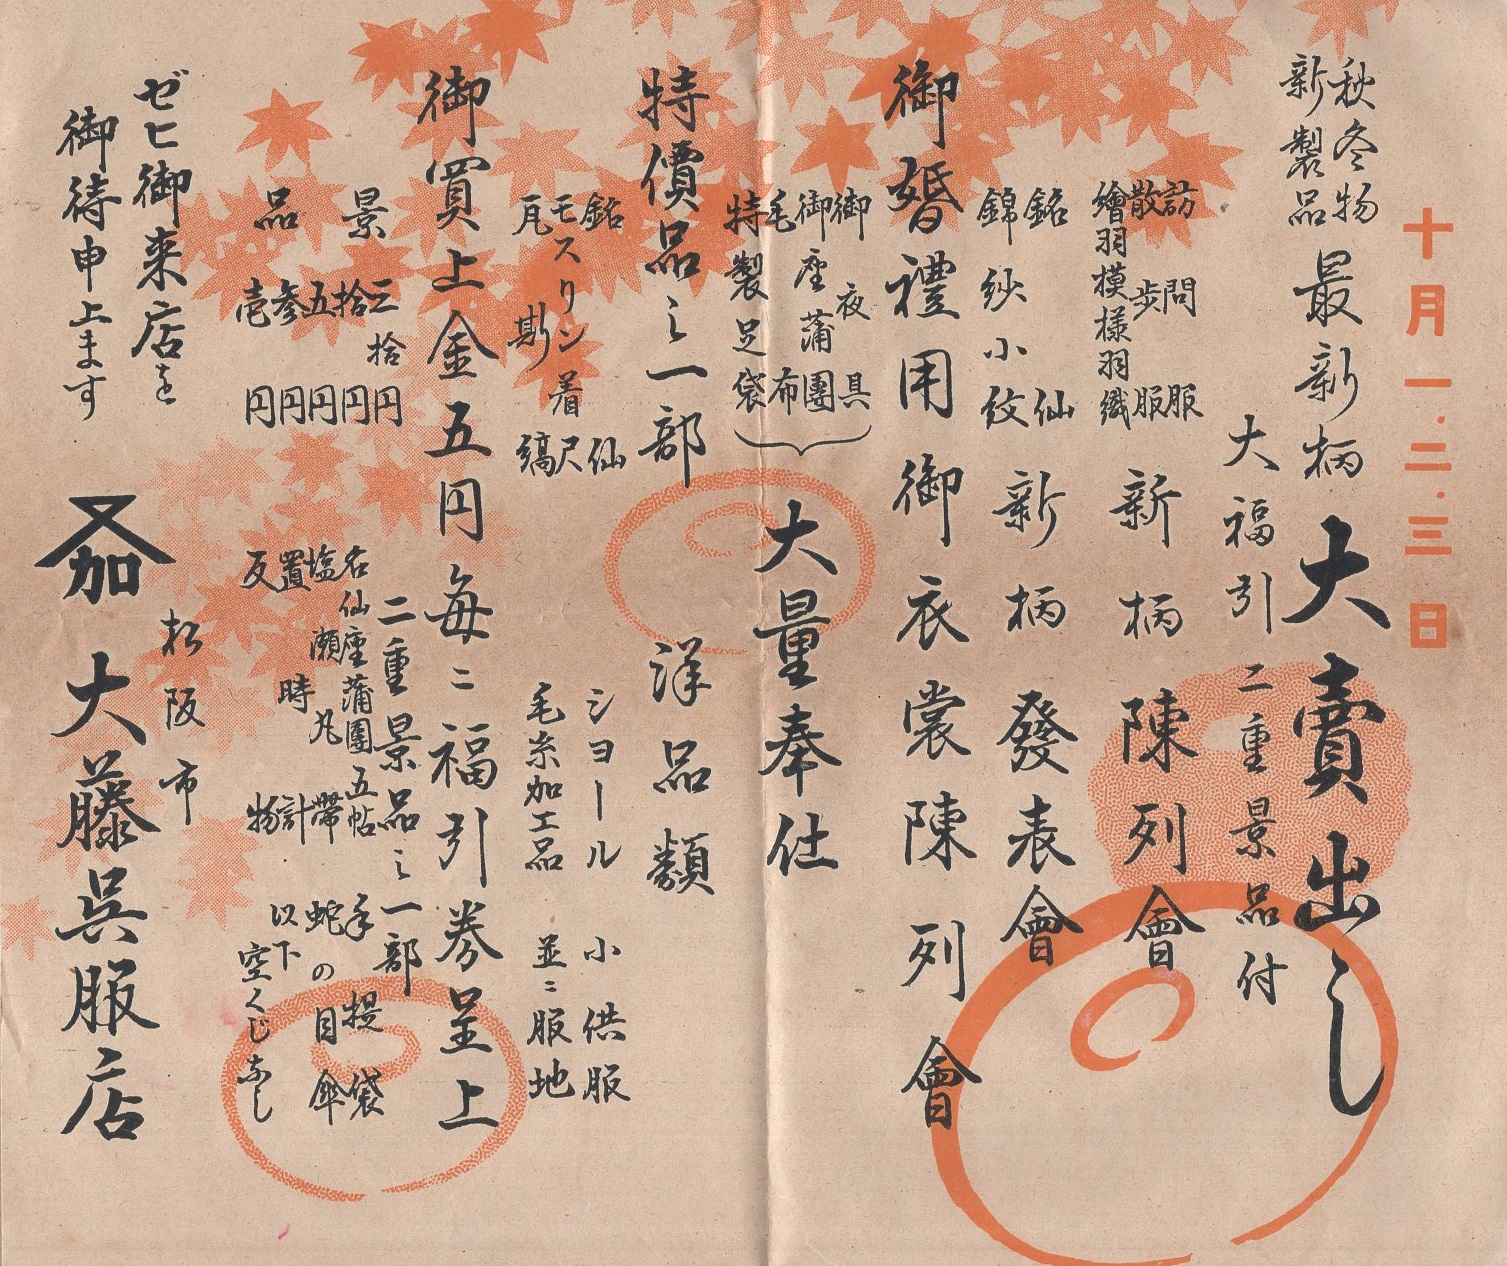 十月一.二.三日
秋冬物
新製品
最新柄
大賣出し
大福引
二重景品付
訪問服
散歩服
繪羽摸樣羽織
新柄陳列會
銘仙
錦紗小紋
新柄發表會
御婚禮用御衣裳陳列會
御夜具
御座蒲團
毛布
特製足袋
大量奉仕
特價品之一部
洋品類
銘仙
モスリン着尺
瓦斯縞
ショール
小供服
毛糸加工品
並ニ服地
御買上金五円毎ニ福引券呈上
二重景品之一部
景品
三拾円
拾円
五円
参円
壱円
名仙座蒲團五帖
塩瀬丸帶
置時計
反物
手提袋
蛇の目傘
以下
空くじなし
ゼヒ御来店を
御待申上ます
加
松阪市
大藤呉服店